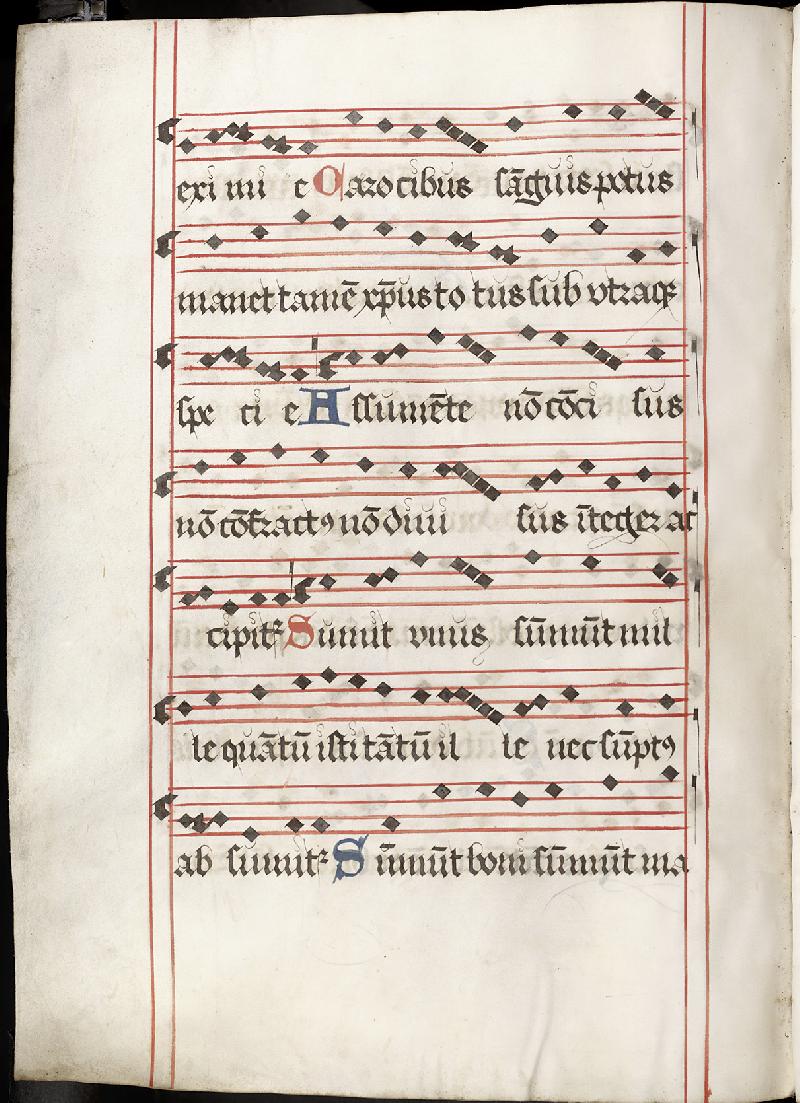 exi mi e Caro cibus sāguis potus
manet tamē xp̄us to tus sub vtraqꝫ
spe ci e A ssumēte nō cōci sus
nō cōfractꝯ nō diui sus īteger ac
cipitꝛ Sumit vnus sūmūt mil
le quātū isti tātū il le nec sūptꝯ
ab sumitꝛ S ūmūt boni sūmūt ma